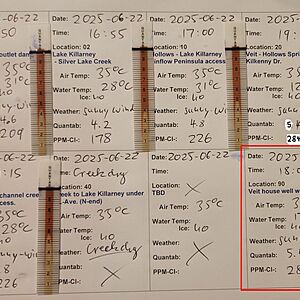 :50
outlet dam
35°C
4.6
209
Date: 2025-06-22
Time: 16:55
Location: 02
Lake Killarney
- Silver Lake Creek
Air Temp: 35°C
Water Temp: 28°C
Ice: 40
Weather: Sunny-Wind
Quantab: 4.2
PPM-Cl-: 178
Date: 2025-06-22
Time: 17:00
Location:
Hollows - Lake Killarney
inflow Peninsula access
Air Temp: 35°C
Water Temp:
Ice: 40
Weather: Sunny-Wind
Quantab: 4.8
PPM-Cl-: 226
Date: 2025
Time: 19:
Location: 20
Veit - Hollows Spri
Kilkenny Dr.
Air Temp: 3
Water Temp:
Ice:
Weather: Su
Quantab: 5.
PPM-Cl-: 28
-06-22
:15
channel cree
cess.
35°C
28°C
40
4.8
226
Date: 2025-06-22
Time: Creek dry
Location: 40
Creek to Lake Killarney under
L-Ave. (N-end)
Air Temp: 35°C
Water Temp:
Ice: 40
Weather: Creek dry
Quantab: X
PPM-Cl-:
Date: 2025-06-22
Time: X
Location:
TBD
Air Temp: 35°C
Water Temp:
Ice: 40
Weather:
Quantab: X
PPM-Cl-:
Date: 2025
Time: 18:0
Location: 90
Veit house well w
Air Temp: 35
Water Temp:
Ice:
Weather: Su
Quantab: 5.
PPM-Cl-: 28